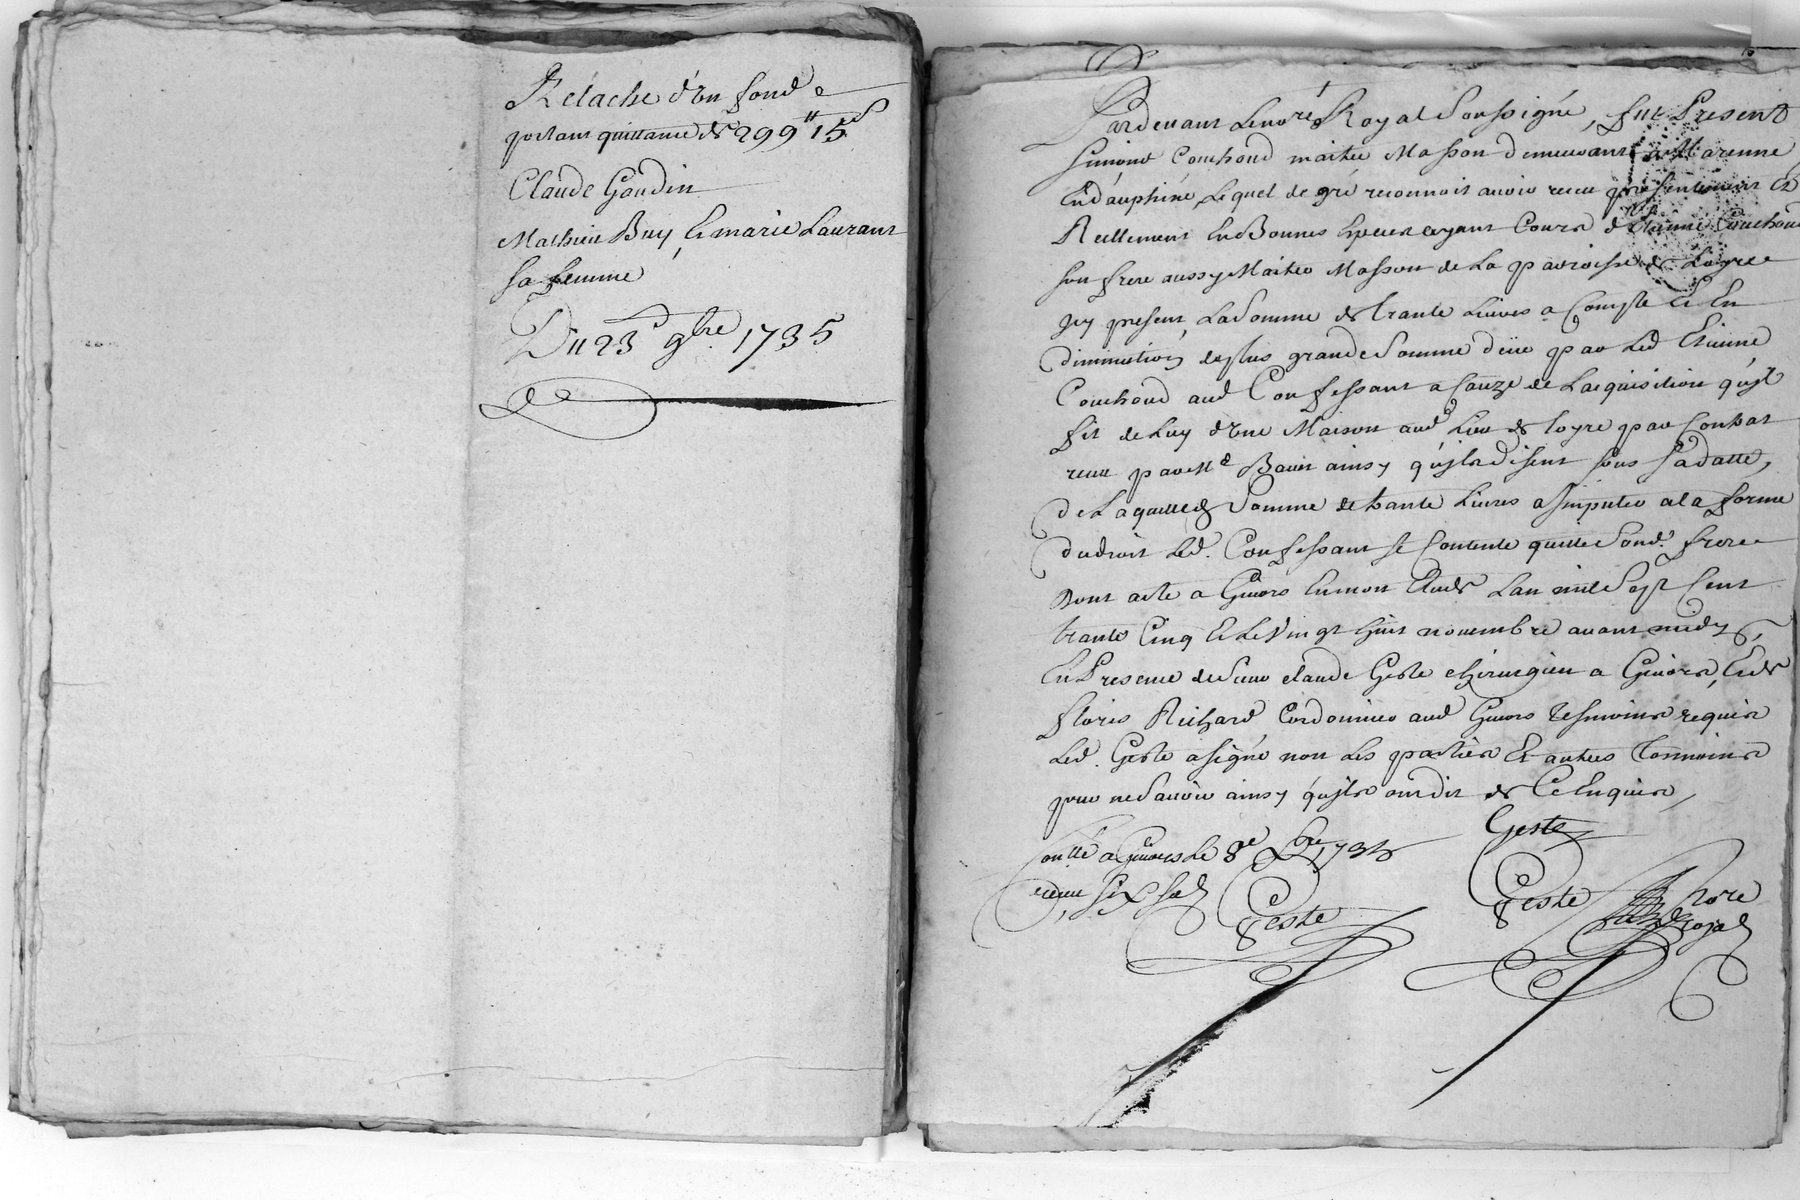 Relache d'un fond
portant quittance de 299ᵗᵗ 15ˢ
Claude Gaudin
Mathieu Buy, et marie Laurant
sa femme
Du 23ᵉ 9bre 1735
Pardevant Le no.re Royal Soussigné, fut Present
Simond Couchoud maitre Masson demeurant a Marenne
En dauphiné, Lequel de gré reconnoit avoir receu presentement Et
Reellement En Bonnes Especes ayant Cours d'Etienne Couchoud
son frere aussy Maitre Masson de La parroisse de Loyre
Icy present, La Somme de trante Livres a Compte Et En
diminution de plus grande Somme düe par Led. Etienne
Couchoud aud. Confessant a Cauze de Lacquisition qu'il
fit de Luy d'une Maison aud. Lieu de loyre par Contrat
receu par Me. ainsy qu'ils disent sous Sa datte,
De Laquelle Somme de trante Livres a simputer a la forme
du droit Led. Confessant se Contente quitte Sond. frere
Dont acte a Givors En mon Etude Lan mil Sept Cent
trante Cinq Et Le Vingt huit novembre avant midy,
En Presence de Sieur claude Geste chirurgien a Givors, Et de
Floris Richard Cordonnier aud. Givors Tesmoins requis
Led. Geste a signé non Les parties Et autres Tesmoins
pour ne Savoir ainsy qu'ils ont dit de Ce Enquis,
Geste
Conllé a Givors le 8e Xbre 1735
receu six sols
Geste
Geste
Nore
Royal